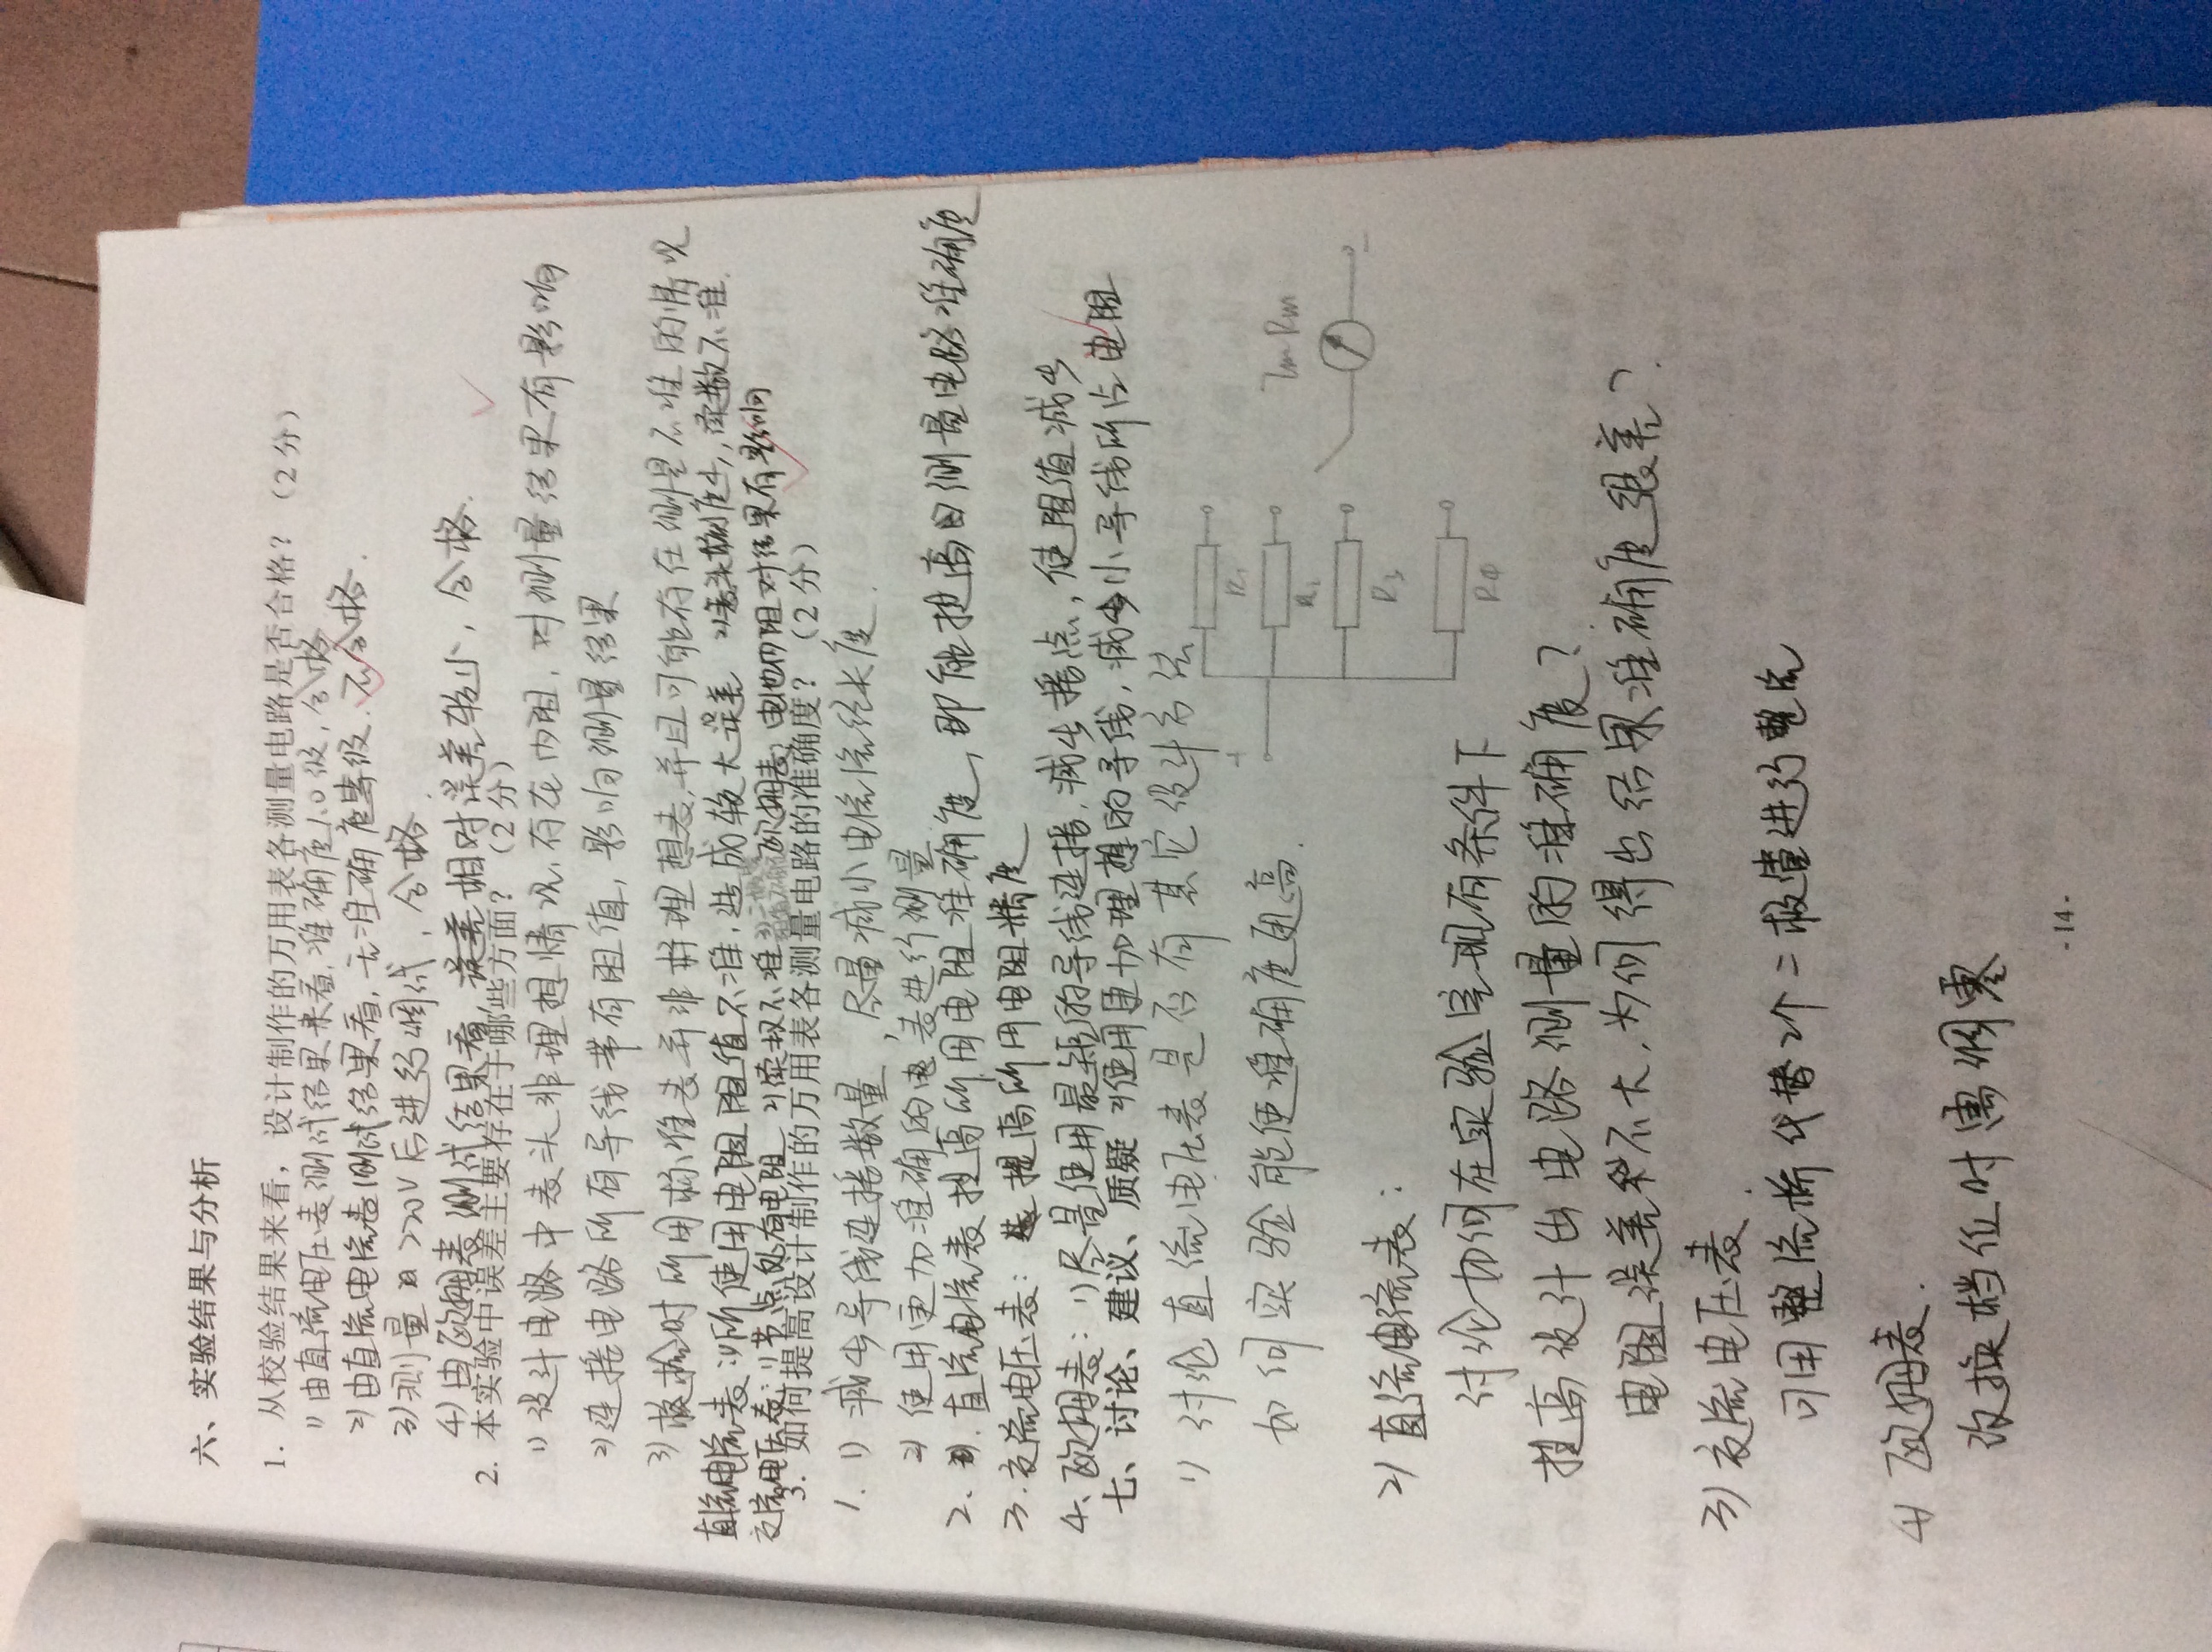 六、实验结果与分析
1. 从校验结果来看，设计制作的万用表各测量电路是否合格？（2分）
1) 由直流电压表测试结果来看，准确度1.0级，合格
2) 由直流电流表测试结果看，无准确度等级，不合格.
3) 测量 220V后进行调试，合格.
4) 由欧姆表测试结果看，误差相对误差较小，合格.
2. 本实验中误差主要存在于哪些方面？（2分）
1) 设计电路中表头非理想情况，存在内阻，对测量结果有影响
2) 连接电路所有导线带有阻值，影响测量结果
3) 校检时所用标准表并非 理想表，并且可能存在测量不准的情况
直流电流表：1)所使用电阻阻值不准，造成较大误差 2)表头 度小，读数不准.
交流电压表：1)节点处有电阻 2)读数不准 3)二极管 欧姆表：电池内阻对结果有影响
3. 如何提高设计制作的万用表各测量电路的准确度？（2分）
1. 1) 减少导线连接数量，尽量减小电流流经长度.
2) 使用更加准确的电表进行测量
2. 直流电流表提高所用电阻准确度，即能提高 测量电路准确度
3. 交流电压表： 提高所用电阻精度
4、欧姆表：1)尽量使用最短的导线连接，减少接点，使阻值减少
七、讨论、建议、质疑 2)使用更加理想的导线，减小导线所占电阻
1) 讨论直流电压表是否有其它设计方法
如何实验能使准确度更高.
+
R1
R2
R3
R4
Im Rm
-
2) 直流电流表：
讨论如何在实验室现有条件下
提高设计出电路测量的准确度？
电阻误差 不大，为何得出结果准确度很差？
3) 交流电压表.
可用整流桥代替2个二极管进行整流
4) 欧姆表.
改换档位时需调零
- 14 -